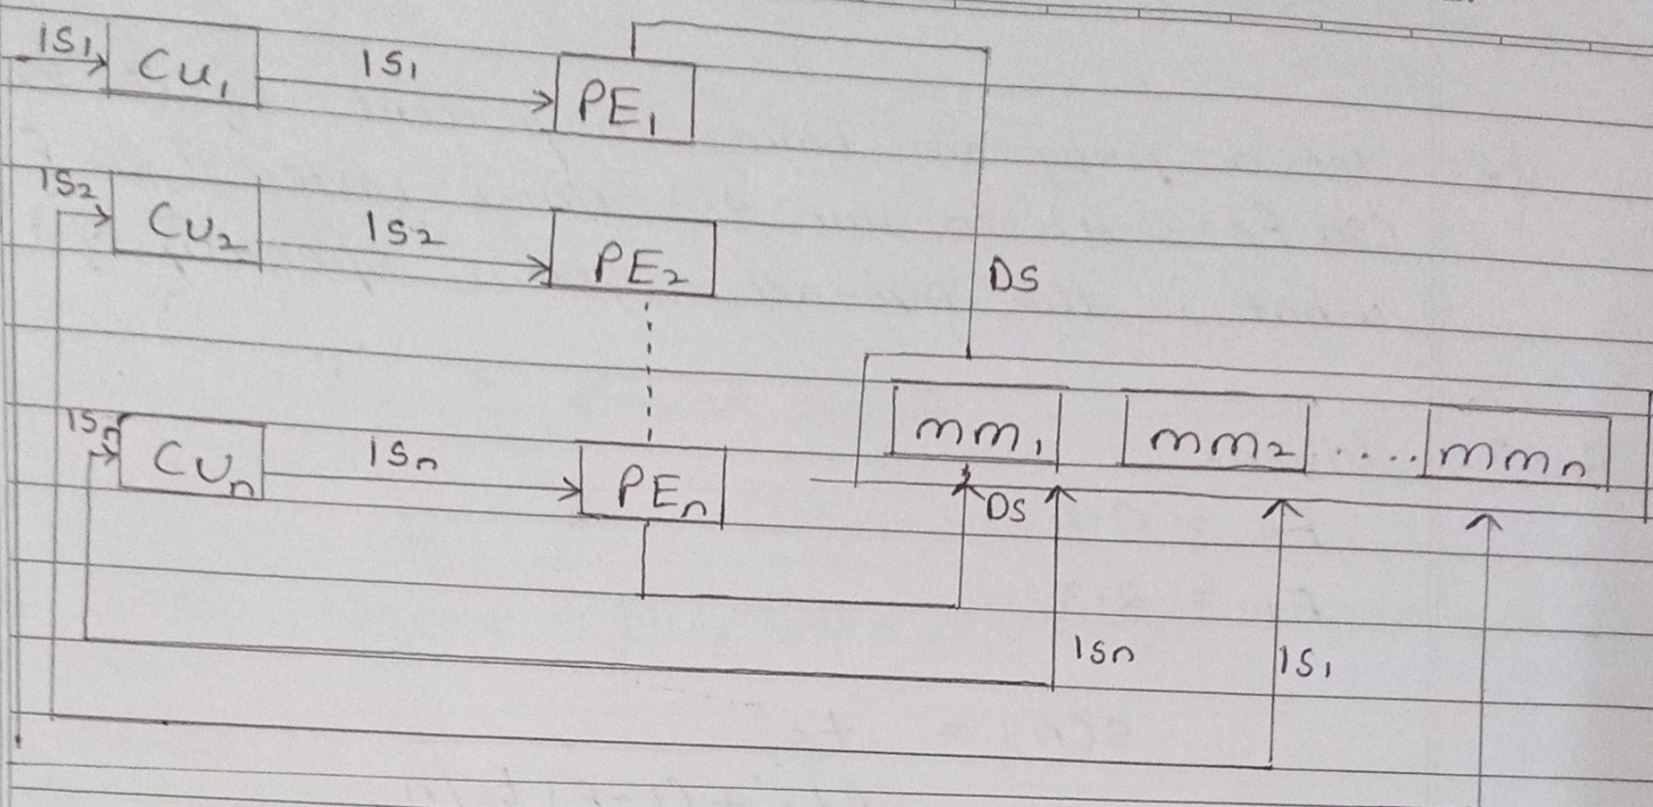 IS1 CU1 IS1 PE1
IS2 CU2 IS2 PE2
DS
ISn CUn ISn PEn
mm1 mm2 ..... mmn
DS
ISn IS1